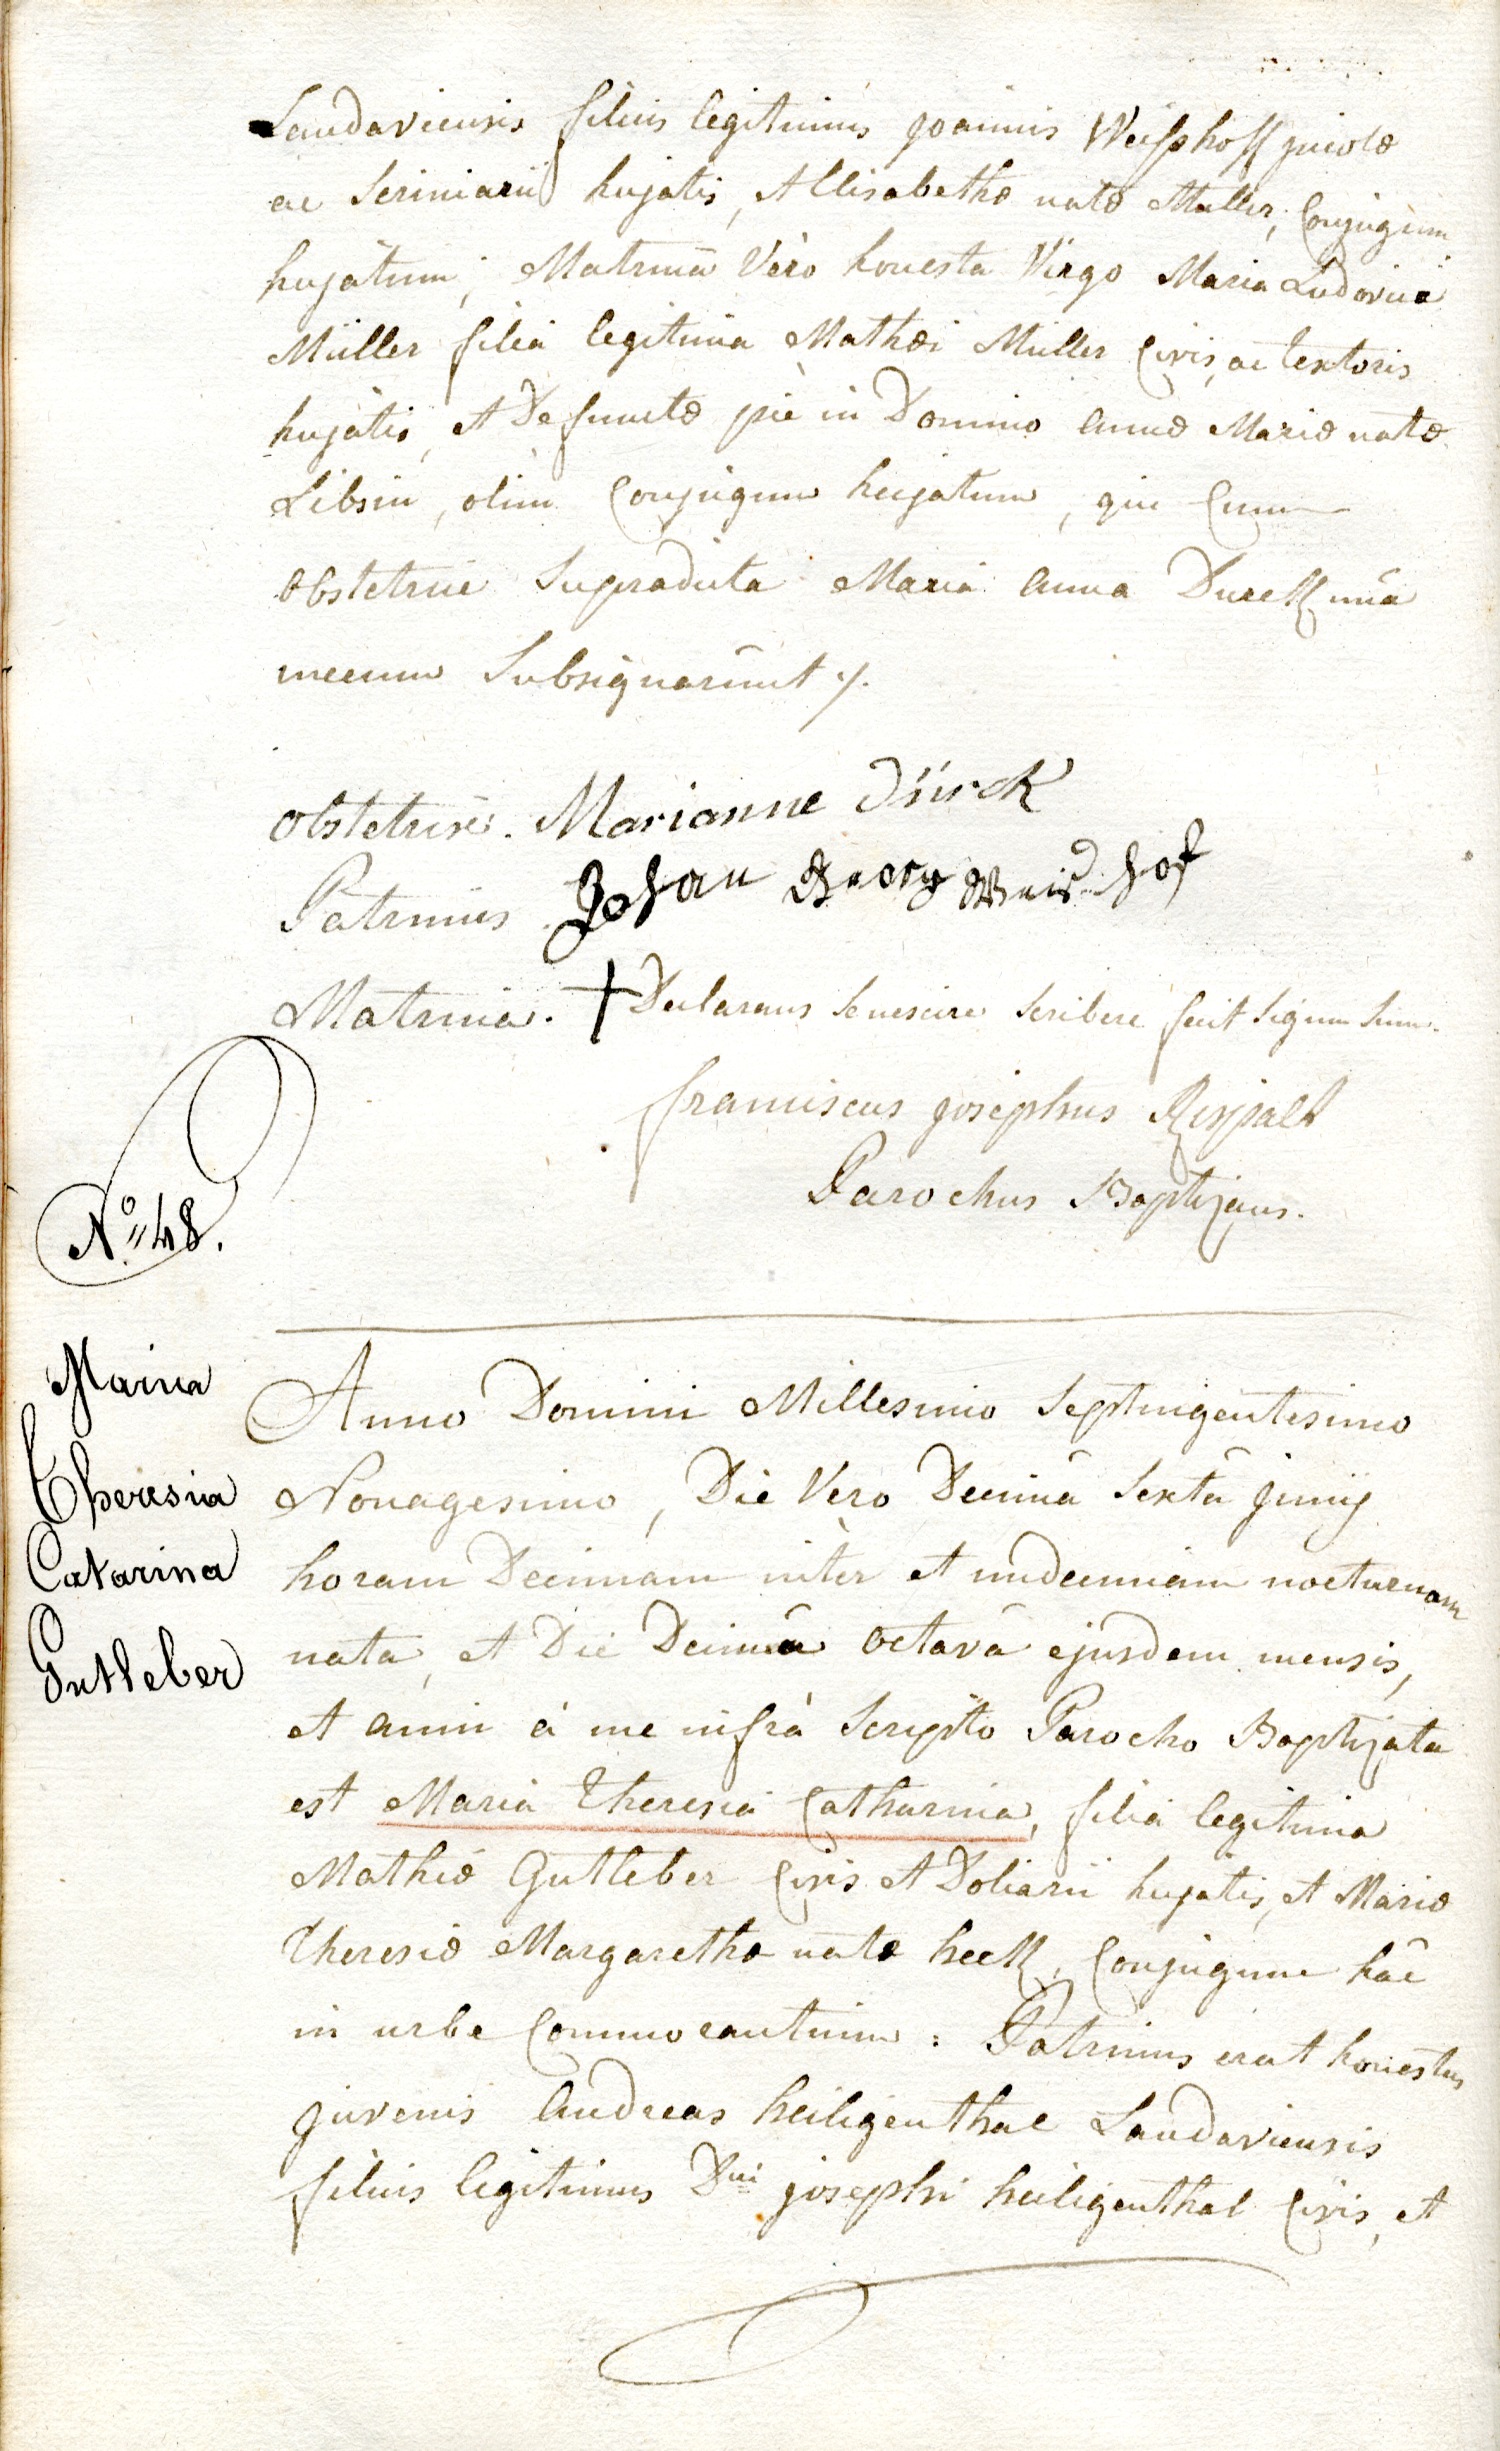 Landaviensis filius legitimus Joannis Weisshoff incolæ
ac Scriniarii hujatis, et Elisabethæ natæ Muller, Conjugum
hujatum; Matrina Vero honesta Virgo Maria Ludovica
Müller filia legitima Mathæi Müller Civis, ac textoris
hujatis, et Defunctæ piè in Domino Annæ Mariæ natæ
Libsin, olim Conjugum hujatum, qui Cum
Obstetrice Supradicta Maria Anna Dureck una
mecum Subsignarunt ./.
Obstetrix. Marianne Dürck
Patrinus. Johan Georg Weishof
Matrina. + Declarans se nescire scribere fecit signum suum.
franciscus josephus
Parochus Baptizans.
No. 48.
Maria
Theresia
Catarina
Gutleber
Anno Domini Millesimo Septingentesimo
Nonagesimo, Die Vero Decimâ Sextâ Junij
horam Decimam inter et undecimam nocturnam
nata, et Die Decimâ octavâ ejusdem mensis,
et anni à me infrà Scripto Parocho Baptizata
est Maria Theresia Catharina, filia legitima
Mathiæ Gutleber Civis et Doliarii hujatis, et Mariæ
Theresiæ Margarethæ natæ heck, Conjugum hâc
in urbe Commorantium: Patrinus erat honestus
juvenis Andreas heiligenthal Landaviensis
filius legitimus Dni josephi heiligenthal Civis, et